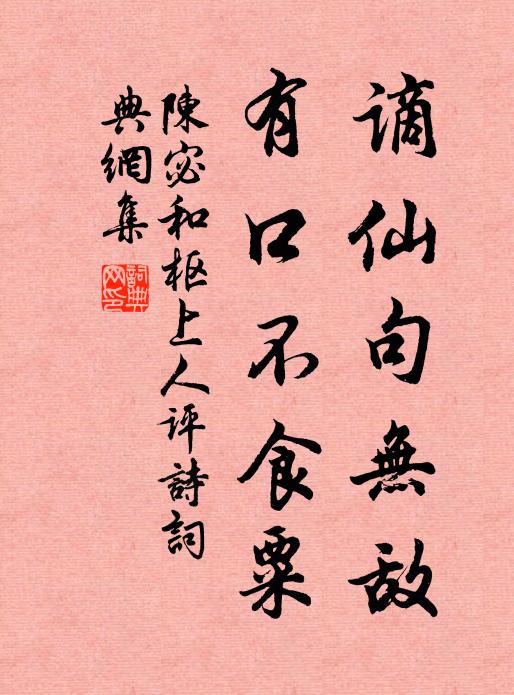 謫仙句無敵
有口不食粟
陳宓和枢上人评詩詞
典網集
詞典網印